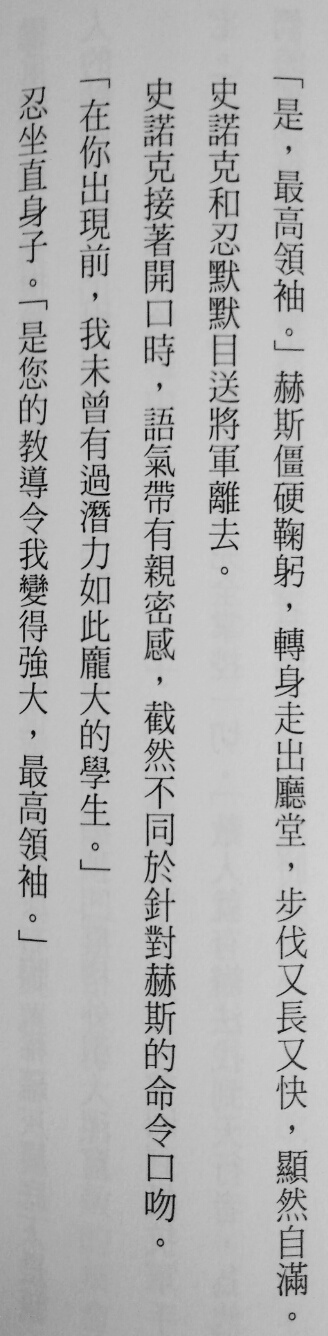 「是，最高領袖。」赫斯僵硬鞠躬，轉身走出廳堂，步伐又長又快，顯然自滿。
史諾克和忍默默目送將軍離去。
史諾克接著開口時，語氣帶有親密感，截然不同於針對赫斯的命令口吻。
「在你出現前，我未曾有過潛力如此龐大的學生。」
忍坐直身子。「是您的教導令我變得強大，最高領袖。」